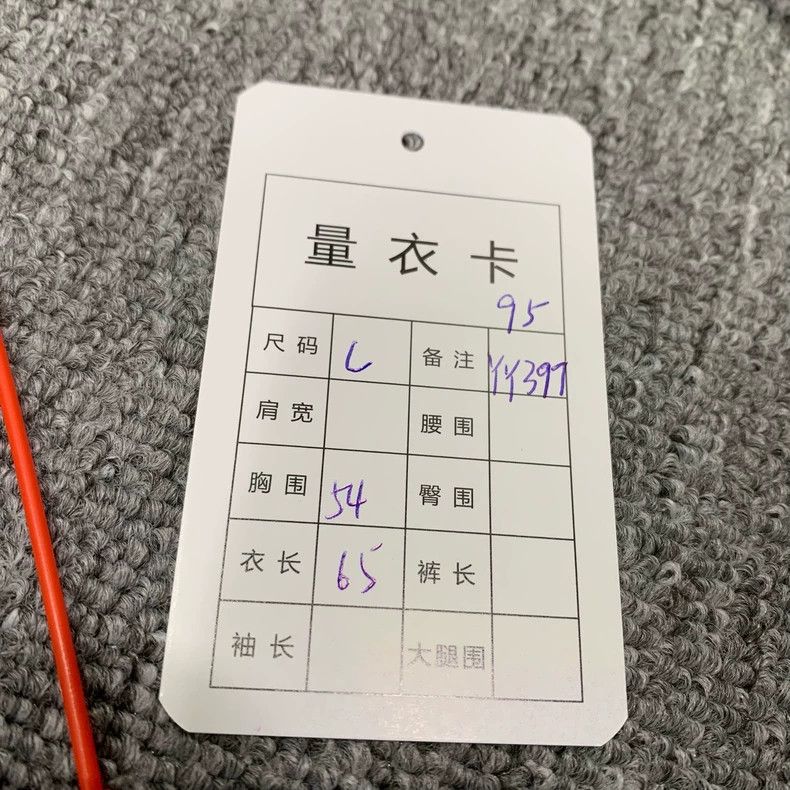 量衣卡
95
尺码 L 备注 YY397
肩宽 腰围
胸围 54 臀围
衣长 65 裤长
袖长 大腿围